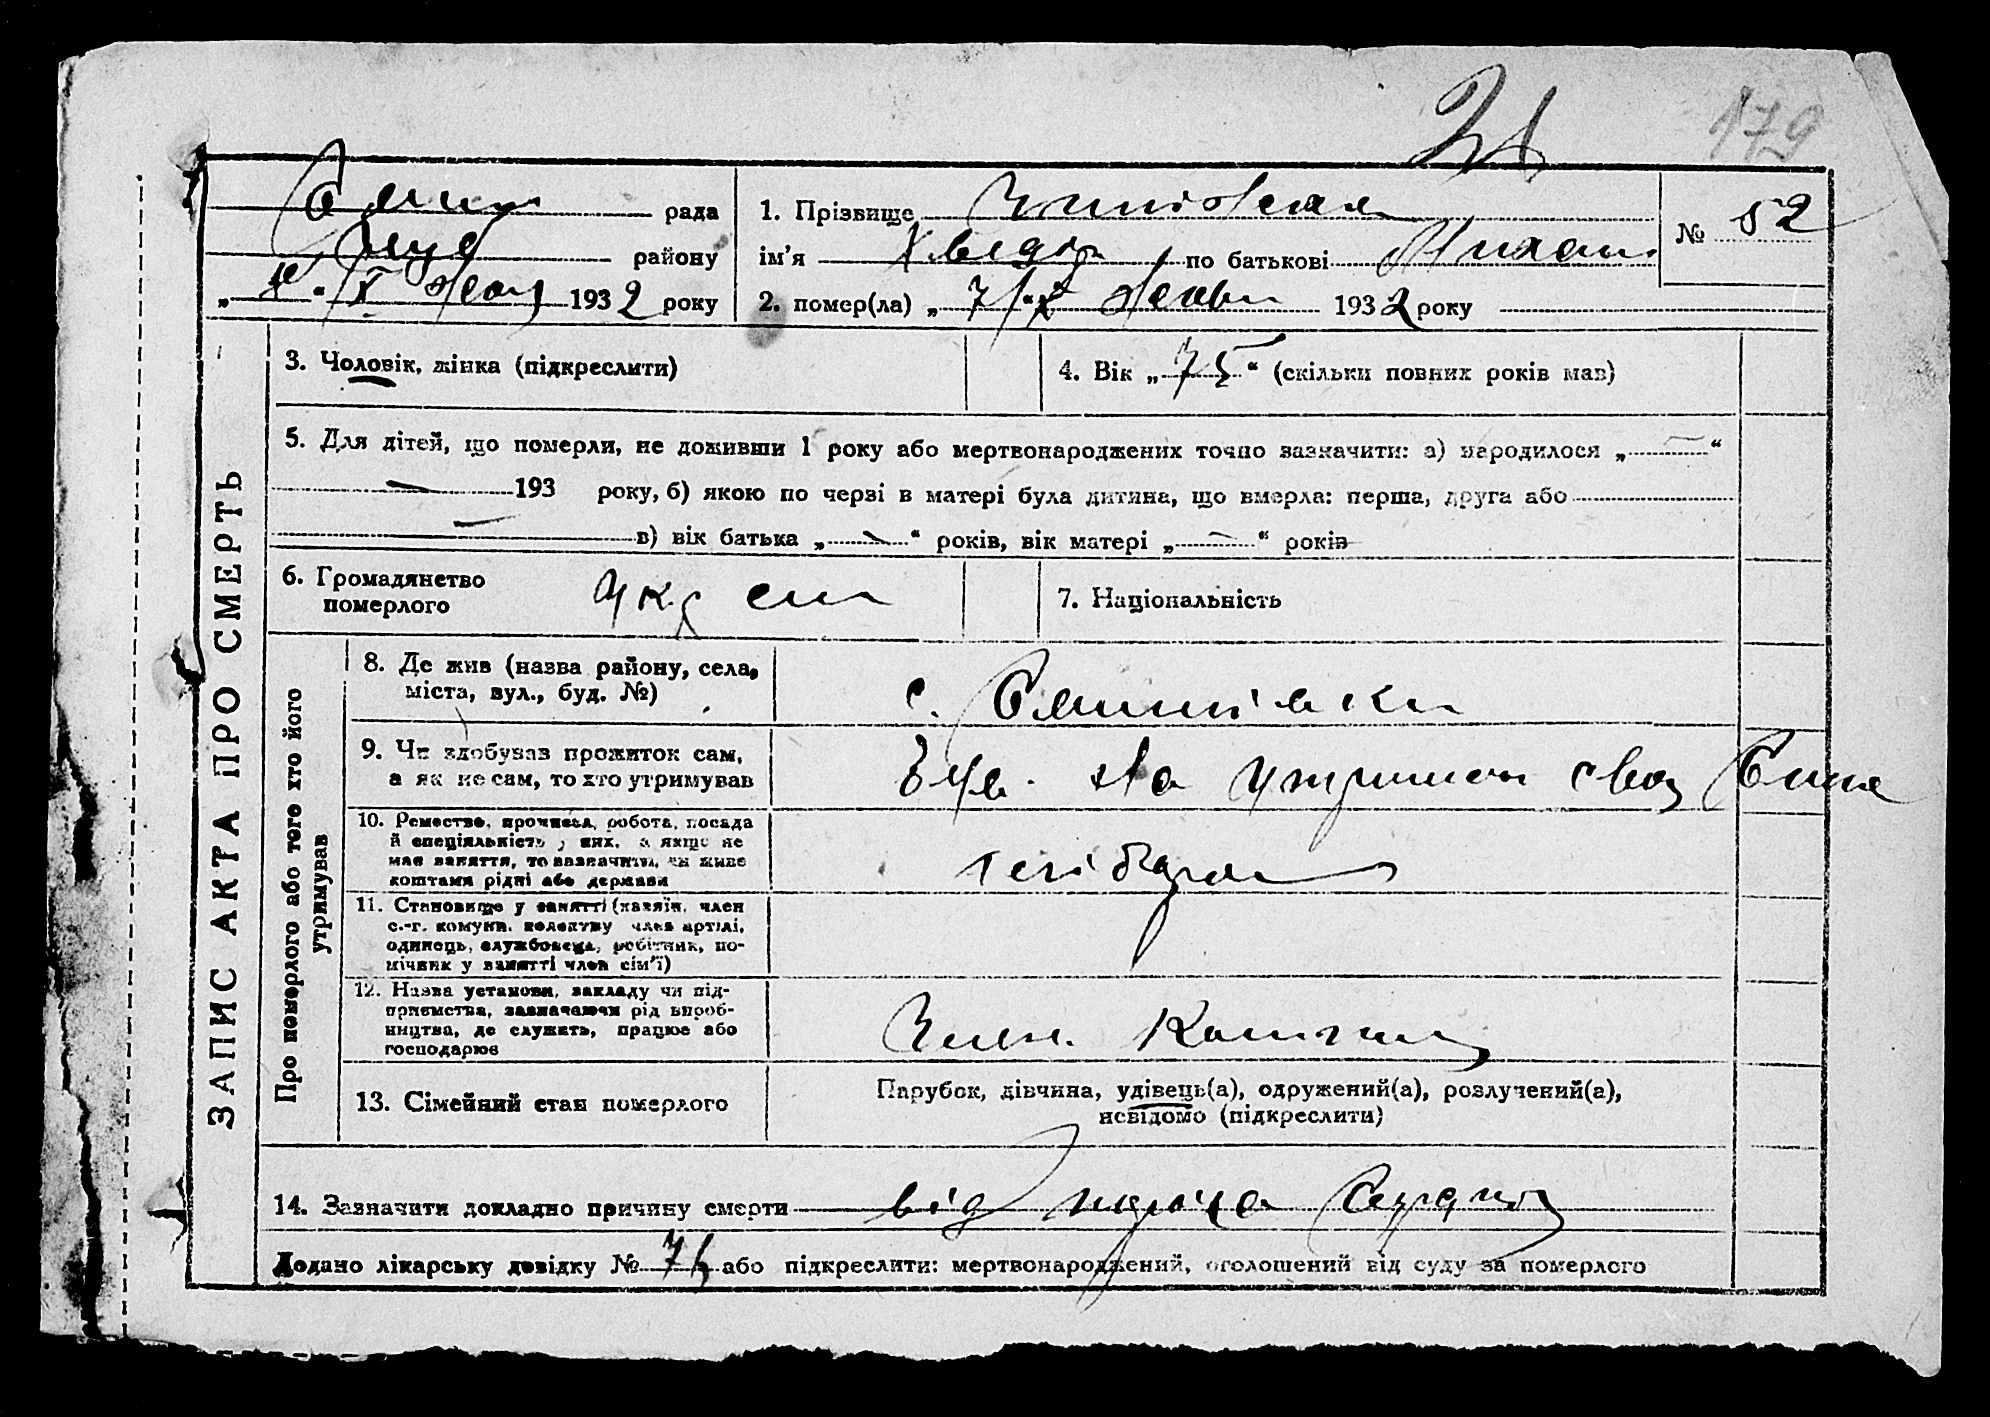 179
рада
району
1932 року
1. Прізвище
№ 52
ім'я Хведор по батькові
2. помер(ла) „7/X" 1932 року
ЗАПИС АКТА ПРО СМЕРТЬ
3. Чоловік, жінка (підкреслити)
4. Вік „75" (скільки повних років мав)
5. Для дітей, що померли, не доживши 1 року або мертвонароджених точно зазначити: а) народилося „ — "
— 193 року, б) якою по черзі в матері була дитина, що вмерла: перша, друга або
— в) вік батька „ — " років, вік матері „ — " років
6. Громадянство
померлого
7. Національність
Про померлого або того хто його
утримував
8. Де жив (назва району, села,
міста, вул., буд. №)
с.
9. Чи здобував прожиток сам,
а як не сам, то хто утримував
був. на
10. Ремество, професія, робота, посада
й спеціяльність у них, а якщо не
мав заняття, то зазначити, чи живе
коштами рідні або держави
11. Становище у занятті (хазяїн, член
с.-г. комуни, колективу член артілі,
одинець, службовець, робітник, по-
мічник у занятті член сім'ї)
12. Назва установи, закладу чи під-
приємства, зазначаючи рід вироб-
ництва, де служить, працює або
господарює
13. Сімейний стан померлого
Парубок, дівчина, удівець(а), одружений(а), розлучений(а),
невідомо (підкреслити)
14. Зазначити докладно причину смерти від порока
Додано лікарську довідку № або підкреслити: мертвонароджений, оголошений від суду за померлого